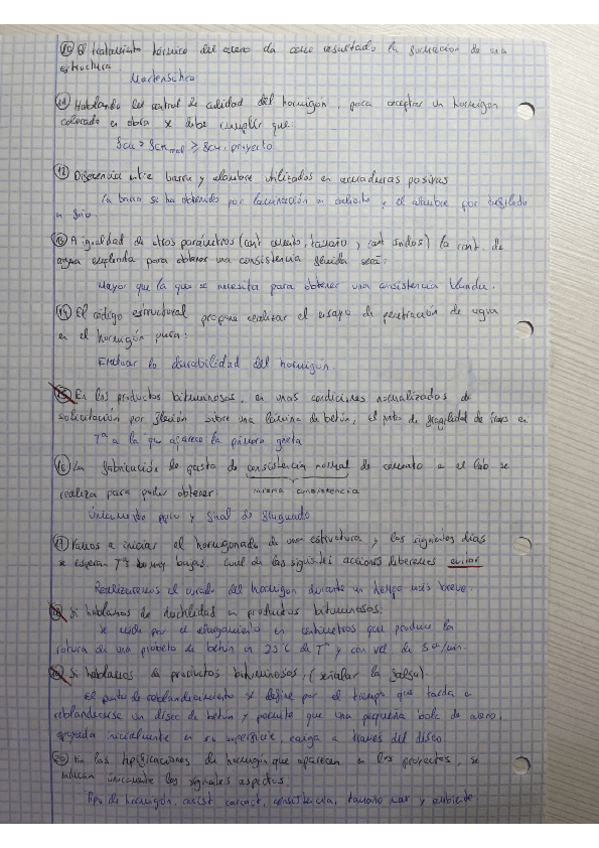 10 El tratamiento térmico del acero da como resultado la formación de una
estructura
Martensítica
11 Hablando del control de calidad del hormigón, para aceptar un hormigón
colocado en obra se debe cumplir que:
proyecto
12 Diferencia entre barra y alambre utilizados en armaduras pasivas
La barra se ha obtenido por laminación en caliente y el alambre por trefilado
en frío
13 A igualdad de otros parámetros (cant cemento, tamaño y cant áridos) la cant. de
agua empleada para obtener una consistencia fluida será:
Mayor que la que se necesita para obtener una consistencia blanda.
14 El código estructural propone realizar el ensayo de penetración de agua
en el hormigón para:
Evaluar la durabilidad del hormigón.
15 En los productos bituminosos, en unas condiciones normalizadas de
solicitación por flexión sobre una lámina de betún, el punto de fragilidad de fraas es
Tª a la que aparece la primera grieta
16 La fabricación de pasta de consistencia normal de cemento en el lab se
realiza para poder obtener: misma consistencia
Únicamente ppio y final de fraguado
17 Vamos a iniciar el hormigonado de una estructura y los siguientes días
se esperan Tªs muy bajas. cual de las siguientes acciones deberemos evitar
Realizaremos el curado del hormigón durante un tiempo más breve.
18 Si hablamos de ductilidad en productos bituminosos:
se mide por el alargamiento en centímetros que produce la
rotura de una probeta de betún a 25ºC de Tª y con vel. de 5 cm/min.
19 Si hablamos de productos bituminosos, (señalar la falsa).
El punto de reblandecimiento se define por el tiempo que tarda a
reblandecerse un disco de betún y permite que una pequeña bola de acero,
apoyada inicialmente en su superficie, caiga a través del disco.
20 En las tipificaciones de hormigón que aparecen en los proyectos, se
indican únicamente los siguientes aspectos:
Tipo de hormigón, resist caract, consistencia, tamaño max y ambiente.